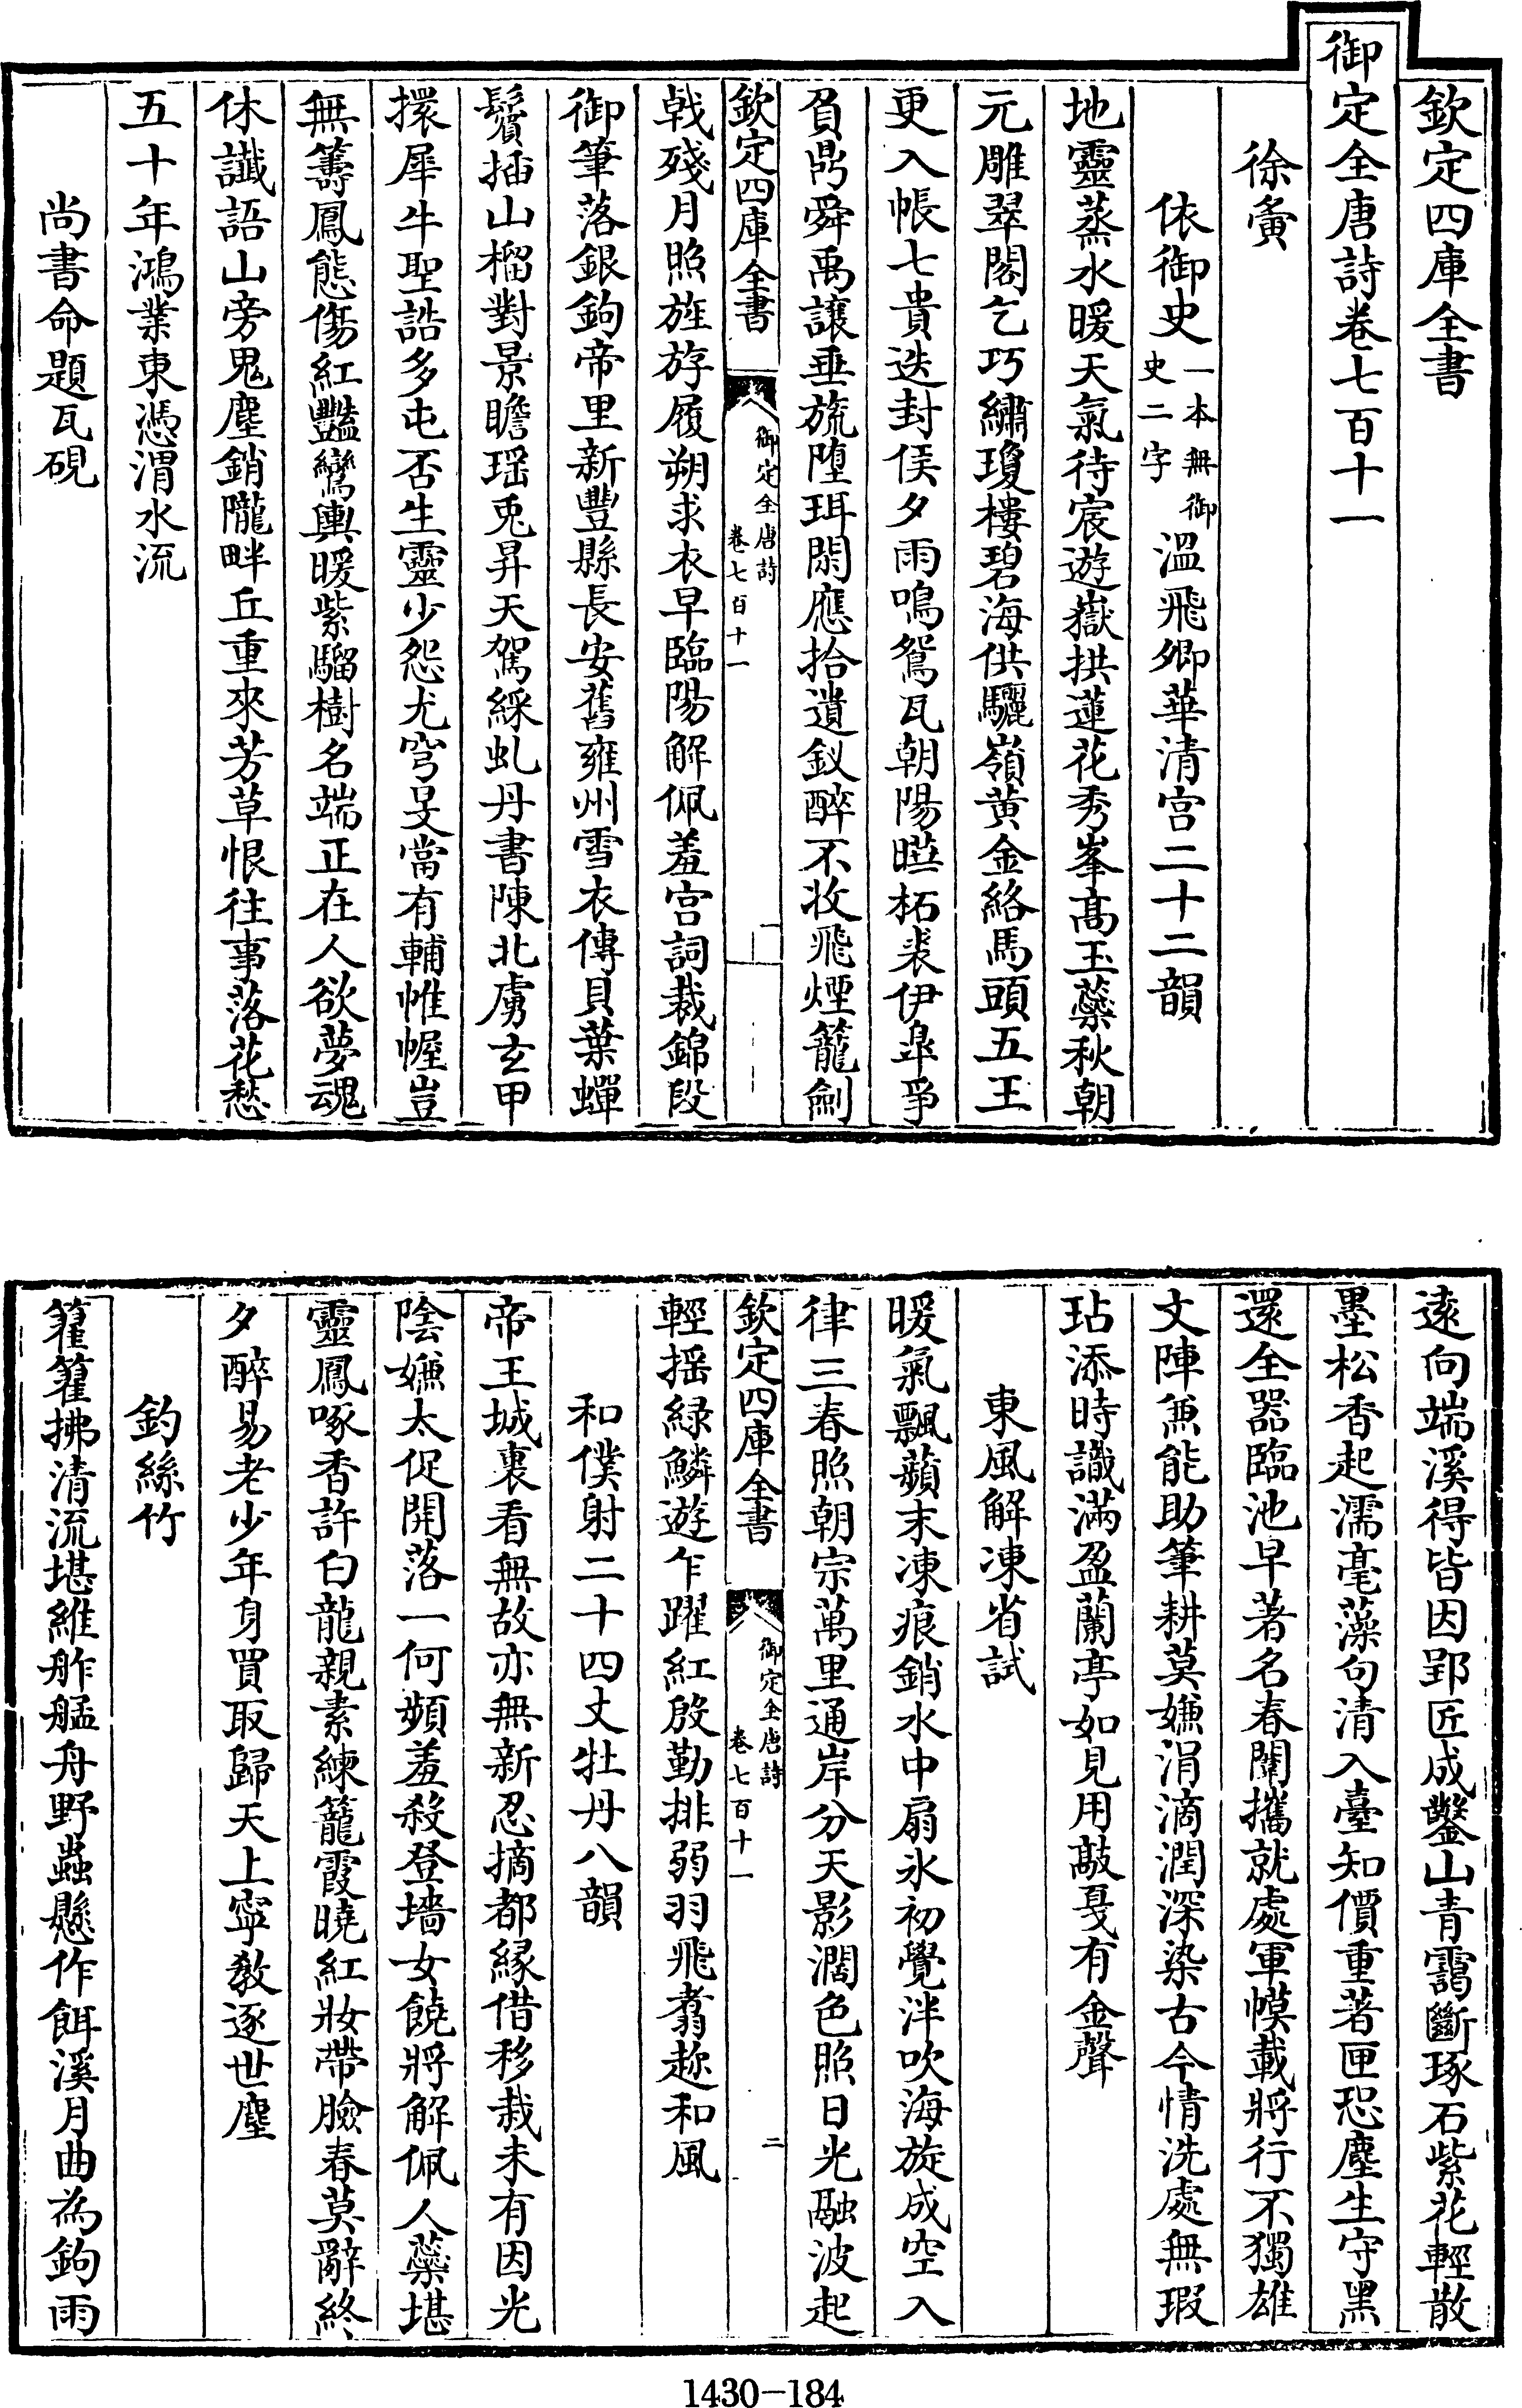 欽定四庫全書
御定全唐詩卷七百十一
徐夤
依御史一本無御史二字溫飛卿華清宮二十二韻
地靈蒸水暖天氣待宸遊嶽拱蓮花秀峯髙玉蘂秋朝
元雕翠閣乞巧繡瓊樓碧海供驪嶺黄金絡馬頭五王
更入帳七貴迭封侯夕雨鳴鴛瓦朝陽曬柘裘伊臯爭
負鼎舜禹讓垂旒墮珥閑應拾遺釵醉不收飛煙籠劍
欽定四庫全書
御定全唐詩
卷七百十一
一
戟殘月照旌斿履朔求衣早臨陽解佩羞宮詞裁錦段
御筆落銀鉤帝里新豐縣長安舊雍州雪衣傳貝葉蟬
鬢插山榴對景瞻瑶兎昇天駕綵虬丹書陳北虜玄甲
擐犀牛聖誥多屯否生靈少怨尤穹旻當有輔帷幄豈
無籌鳳態傷紅豔鸞輿暖紫騮樹名端正在人欲夢魂
休讖語山旁鬼塵銷隴畔丘重來芳草恨往事落花愁
五十年鴻業東憑渭水流
尚書命題瓦硯
逺向端溪得皆因郢匠成鑿山青靄斷琢石紫花輕散
墨松香起濡毫藻句清入臺知價重著匣恐塵生守黑
還全器臨池早著名春闈攜就處軍幙載將行不獨雄
文陣兼能助筆耕莫嫌涓滴潤深染古今情洗處無瑕
玷添時識滿盈蘭亭如見用敲戛有金聲
東風解凍省試
暖氣飄蘋末凍痕銷水中扇氷初覺泮吹海旋成空入
律三春照朝宗萬里通岸分天影濶色照日光融波起
欽定四庫全書
御定全唐詩
卷七百十一
二
輕揺緑鱗遊乍躍紅殷勤排弱羽飛翥趂和風
和僕射二十四丈牡丹八韻
帝王城裏看無故亦無新忍摘都緣借移栽未有因光
陰嫌太促開落一何頻羞殺登墻女饒將解佩人蘂堪
靈鳳啄香許白龍親素練籠霞曉紅妝帶臉春莫辭終
夕醉易老少年身買取歸天上寧教逐世塵
釣絲竹
籊籊拂清流堪維舴艋舟野蟲懸作餌溪月曲為鉤雨
1430-184